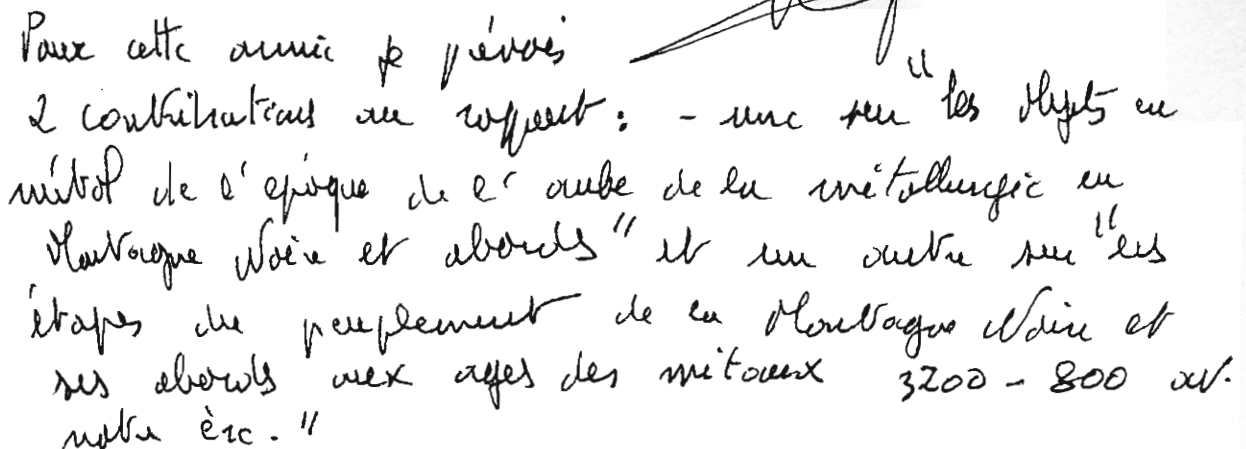 Pour cette année je prévois
2 contributions au rapport : - une sur "les objets en
métal de l'époque de l'aube de la métallurgie en
Montagne Noire et abords" et un autre sur "les
étapes du peuplement de la Montagne Noire et
ses abords aux ages des métaux 3200 - 800 av.
notre ère."